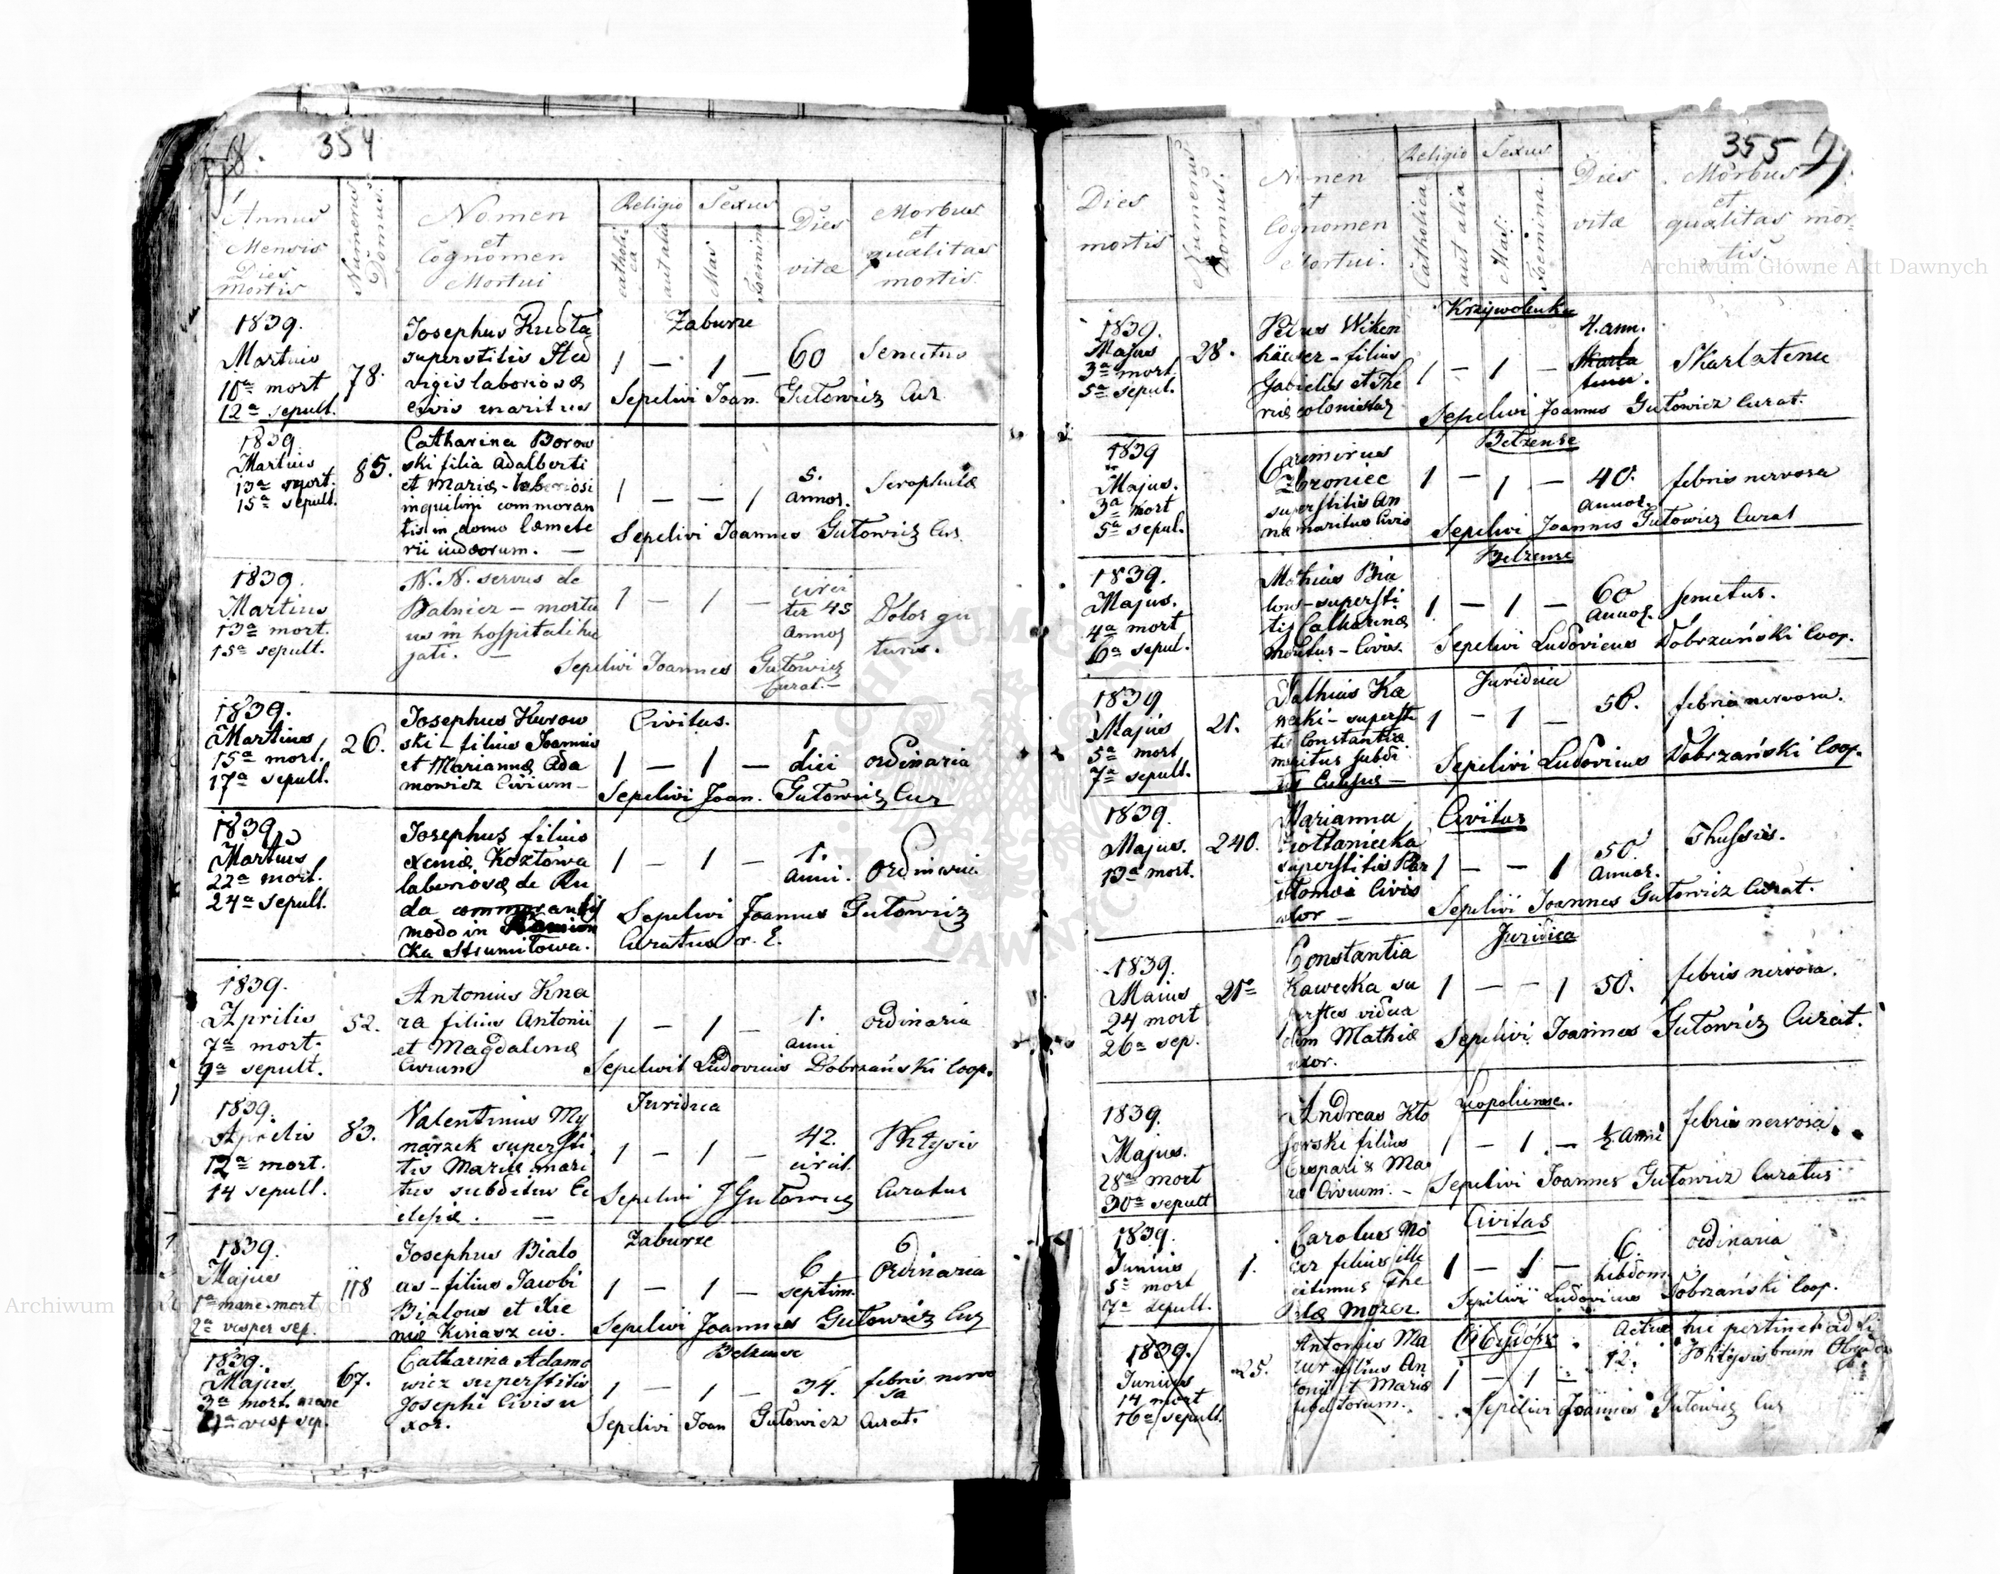 354
Annus
Mensis
Dies
Mortis
Numerus
Domus
Nomen
et
Cognomen
Mortui
Religio
catholica
aut alia
Sexus
Mas
Foemina
Dies
vitæ
Morbus
et
qualitas
mortis
Zaburze
1839.
Martius
10ª mort
12ª sepult.
78.
Josephus
superstitis Hed
vigis laboriosæ
civis maritus
1 — 1 —
60
Senectus
Sepelivi Joan. Gutowicz Cur
1839.
Martius
13ª mort.
15ª sepult.
85.
Catharina Borow
ski filia Adalberti
et Mariæ - laboriosi
inquilini commoran
tis in domo Cæmete
rii iudæorum. —
1 — — 1
5.
annor.
Scrophulæ
Sepelivi Joannes Gutowicz Cur.
1839.
Martius
13ª mort.
15ª sepult.
N. N. servus de
Batnicz — mortu
us in hospitali hu
jati. —
1 — 1 —
circi
ter 45
annor
Dolor gu
turis.
Sepelivi Joannes Gutowicz
Curat. —
Civitas.
1839.
Martius
15ª mort.
17ª sepult.
26.
Josephus Kurow
ski - filius Joannis
et Mariannæ Ada
mowicz Civium —
1 — 1 —
1.
diei
ordinaria
Sepelivi Joan. Gutowicz Cur
1839
Martius
22ª mort.
24ª sepult.
Josephus filius
Xeniæ Koztowa
laboriosæ de Ru
da commorantis
modo in
cka Strumiłowa.
1 — 1 —
1.
anni.
Ordinaria
Sepelivi Joannes Gutowicz
Curatus r. l.
1839.
Aprilis
7ª mort.
9ª sepult.
52.
Antonius Kna
ra filius Antonii
et Magdalenæ
Civium
1 — 1 —
1.
anni
ordinaria
Sepelivit Ludovicus Dobrzański Coop.
Juridica
1839.
Aprilis
12ª mort.
14 sepult.
83.
Valentinus My
narzek supersti
tis Mariæ mari
tus subditus Ec
clesiæ. —
1 — 1 —
42.
circit.
Phtysis
Sepelivi J Gutowicz Curatus
Zaburze
1839.
Majus
1ª mane mort
2ª vesper sep.
118
Josephus Biało
as - filius Jacobi
Białous et Xe
niæ Kinasz civ.
1 — 1 —
6
septim.
Ordinaria
Sepelivi Joannes Gutowicz Cur
Belzense
1839.
Majus
3ª mort. mane
4ª vesp sep.
67.
Catharina Adamo
wicz superstitis
Josephi Civis u
xor.
1 — 1 —
34.
febris nervo
sa
Sepelivi Joan Gutowicz Curat.
355
Dies
mortis
Numerus
Domus.
Nomen
et
Cognomen
Mortui.
Religio
Catholica
aut alia
Sexus
Mas.
Foemina.
Dies
vitæ
Morbus
et
qualitas mor-
tis.
Krzywolanka
1839.
Majus
3ª mort.
5ª sepul.
28.
Petrus Wiken
häuser - filius
Gabrielis et The
colonistar
1 — 1 —
4. ann.
Skarlatenu
Sepelivi Joannes Gutowicz Curat.
Belzense
1839
Majus.
3ª mort
5ª sepul.
Casimirus
Zbroniec
superstitis An
næ maritus Civis
1 — 1 —
40.
annor.
febris nervosa
Sepelivi Joannes Gutowicz Curat
Belzense
1839.
Majus.
4ª mort
6ª sepul.
Mathias Bia
lous - supersti
tis Catharinæ
maritus - Civis
1 — 1 —
60
annor.
senectus.
Sepelivi Ludovicus Dobrzański Coop.
Juridica
1839
Majus
5ª mort
7ª sepult.
21.
Mathias Ka
wecki - supersti
tis Constantiæ
maritus subdi
1 — 1 —
56.
febris nervosa.
Sepelivi Ludovicus Dobrzański Coop.
Civitas
1839.
Majus.
13ª mort.
240.
Marianna
superstitis Bar
tolomæi Civis
uxor —
1 — — 1
50
annor.
Thussis.
Sepelivi Joannes Gutowicz Curat.
Juridica
1839.
Maius
24 mort
26ª sep.
21ª
Constantia
Kawecka su
perstes vidua
Mathiæ
uxor.
1 — — 1
50.
febris nervosa.
Sepelivi Joannes Gutowicz Curat.
Leopoliense.
1839.
Majus.
28ª mort
30ª sepult
Andreas Kło
sowski filius
Casparis & Ma
riæ Civium. —
1 — 1 —
½ Anni
febris nervosa.
Sepelivi Joannes Gutowicz Curatus
Civitas
1839.
Junius
5ª mort
7ª sepult.
1.
Carolus Mo
zer filius ille
gitimus The
klæ Mozer.
1 — 1 —
6.
hebdom.
ordinaria
Sepelivi Ludovicus Dobrzański Coop.
1839.
Junius
14 mort
16ª sepult.
25.
Antonius Ma
zur filius An
tonii et Mariæ
1 — 1 —
12.
Phtysis
Sepelivi Joannes Gutowicz Cur
Archiwum Główne Akt Dawnych